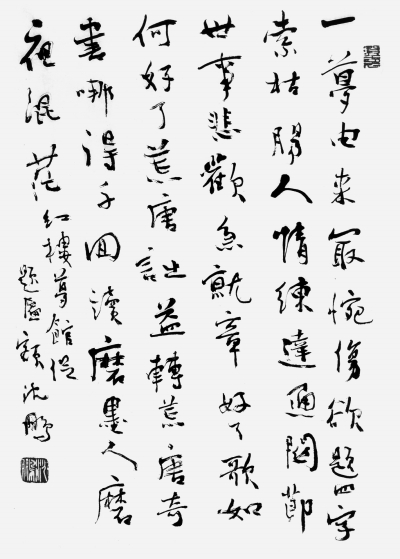 一夢由来最惋傷欲題四字
索枯腸人情練達通關節
世事悲歡急就章好了歌如
何好了荒唐益轉荒唐奇
書哪得千回讀磨墨人磨
夜混茫紅樓夢館促
題匾額沈鵬